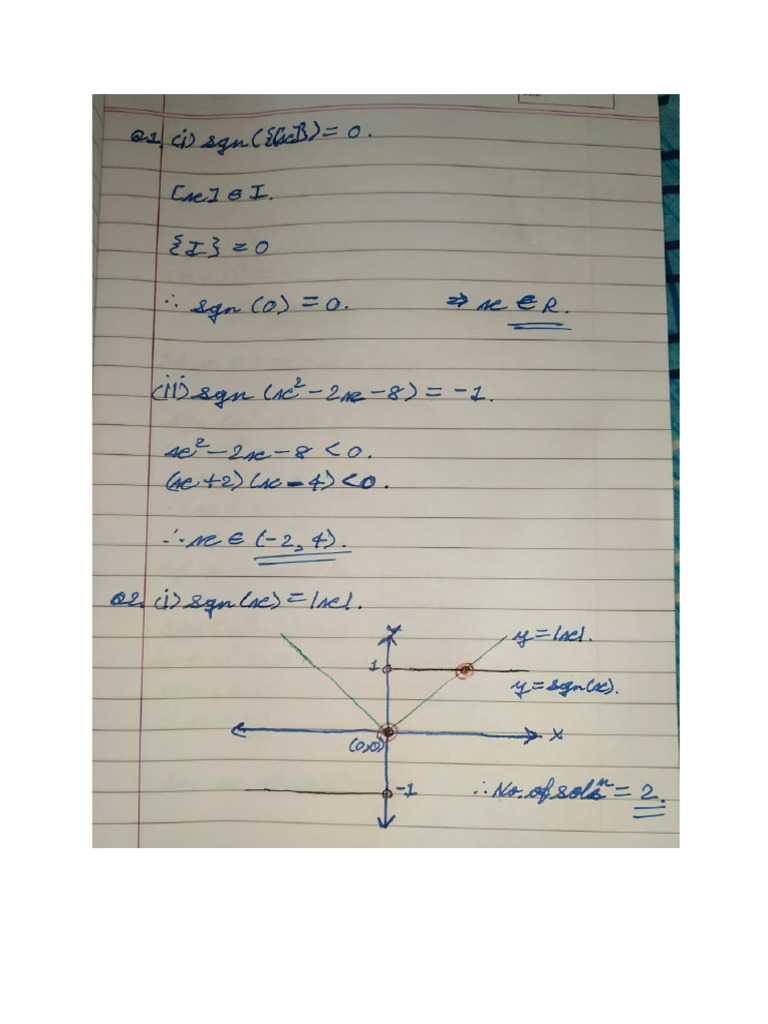 Q1. (i) sgn({[x]}) = 0.
[x] ∈ I.
{I} = 0
∴ sgn (0) = 0. ⇒ x ∈ R.
(ii) sgn (x² - 2x - 8) = -1.
x² - 2x - 8 < 0.
(x + 2) (x - 4) < 0.
∴ x ∈ (-2, 4).
Q2. (i) sgn(x) = |x|.
Y
y = |x|.
1
y = sgn(x).
X
(0,0)
-1
∴ No. of solⁿ = 2.